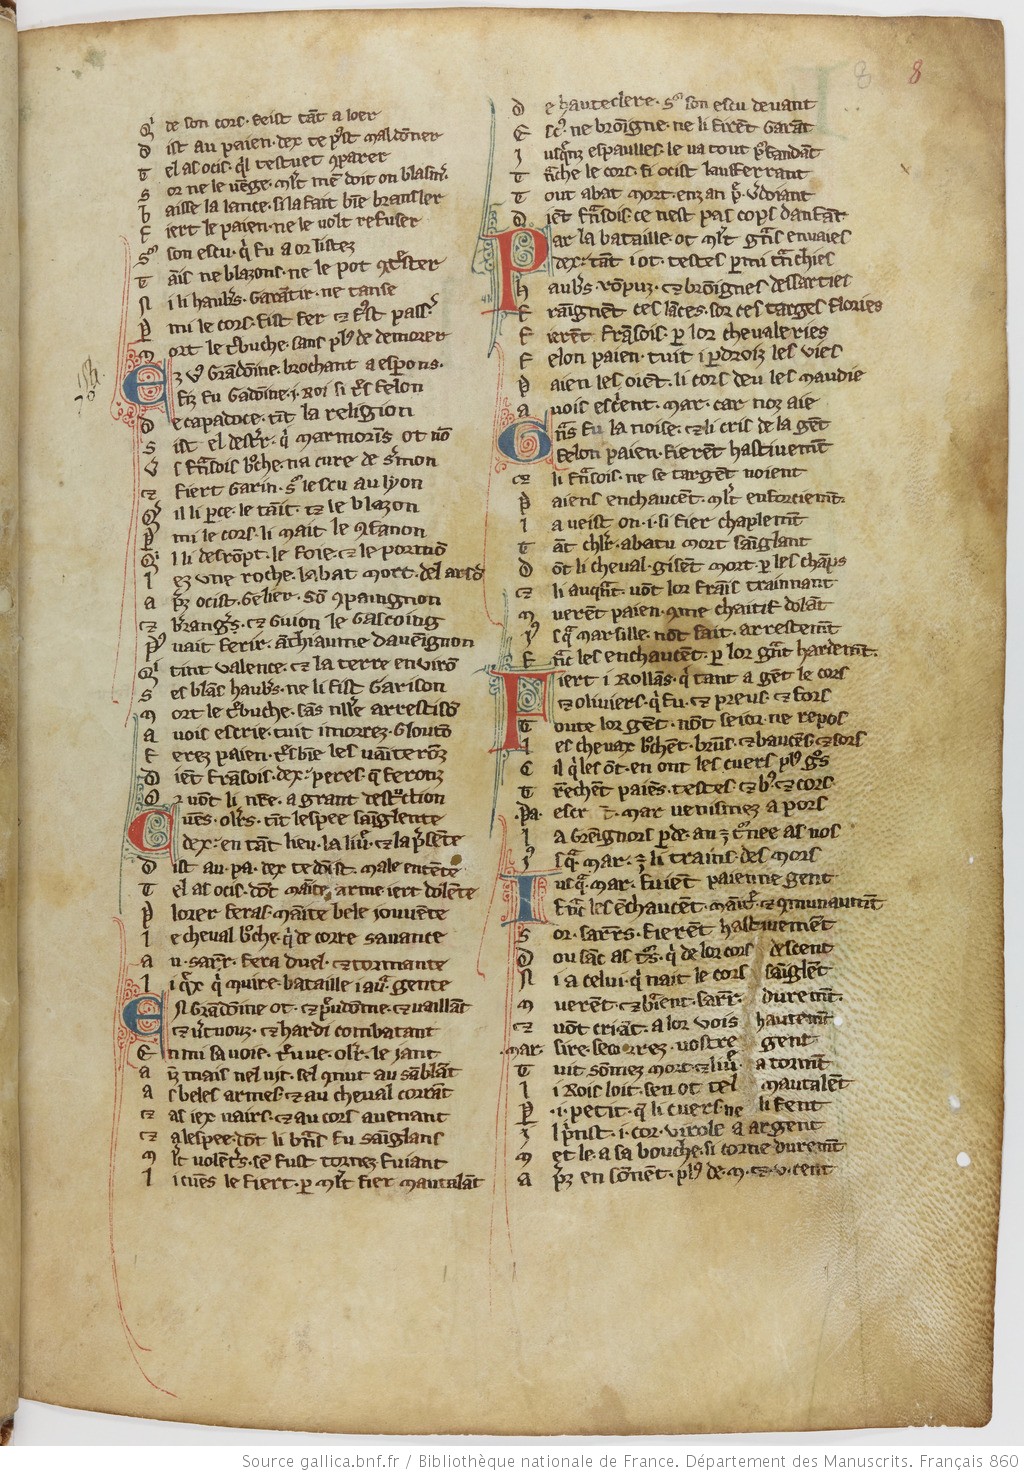 8 8
Q̃ de son cors feist tāt a loer
D ist au paien dex te p̃st mal doner
T el as ocis q̃l testuet 9parer
S or ne le uēge ml̃t mē doit on blasm̃
B aisse la lance si la fait bīe branller
F iert le paien ne le uolt refuser
S9 son escu q̃ fu a or listez
T āis ne blazons ne le pot 9tr̃ster
N i li haub̃s garātir ne tanse
P mi le cors fist fer ⁊ fust pass̃
M ort le t̃buche sans pl9 de demorer
E
fiz fu
D e capadoce tīt la religion
S ist el dest̃r q̃ marmoris ot nō
V s frāsois b̃che na cure de s̃mon
⁊ fiert Garin s9 lescu au lyon
Q̃ il li p̃ce le tāit ⁊ le blazon
P mi le cors li mait le 9fanon
Q̃ l li desrōpt le foie ⁊ le pormō
L ez une roche labat mort del arsō
A p̃z ocist Gelier sō 9paingnon
⁊ b̃rang̃s ⁊ Guion le Gascoing
P9 uait ferir āchiaume dauēignon
Q̃ tint valence ⁊ la terre enuirō
S es blās haub̃s ne li fist garison
M ort le t̃buche sās nll̃e arrestisō
A uois escrie tuit i morrez gloutō
F erez paien t̃sbīe les uāiterōz
D iēt frāsois dex peres q̃ feronz
Or uōt li nr̃e a grant dest̃ction
C uēs ol̃rs tīt lespee sāiglente
dex en tāt lieu la liũ ⁊ la p̃sēte
D ist au pa. dex te dōist male entēte
T el as ocis dōt māite arme iert dolēte
P lorer feras māite bele iouuēte
L e cheual b̃che q̃ de corre sauance
A u sarr̃ fera duel ⁊ tormante
L i q̃x q̃ muire bataille i aũa gente
EN Grandōine ot ⁊ p̃udōme ⁊ uaillāt
⁊ ũtuouz ⁊ hardi combatant
E nmi sa uoie t̃uue ol̃r le iant
A īz mais nel uit sel 9nut au sāblāt
A s beles armes ⁊ au cheual corāt
⁊ as iex uairs ⁊ au cors auenant
⁊ a lespee dōt li b̃ns fu sāiglans
M l̃t uolent̃s sē fust tornez fuiant
L i cuēs le fiert p ml̃t fier mautalāt
D e hauteclere s9 son escu deuant
E sc9 ne brōigne ne li firēt garāt
I usq̃nz espaulles le ua tout p̃fandāt
T r̃che le cors si ocist lauferrant
T out abat mort enz an p̃ ũdoiant
D iēt frāsois ce nest pas cops danfāt
Par la bataille ot ml̃t gr̃s enuaies
dex tāt i ot testes pmi tr̃chies
H aub̃s rōpuz ⁊ brōignes dessarties
F raignēt ces lāces sor ces targes flories
F ierēt frāsois p lor cheualeries
F elon paien tuit i pdroiz les vies
P aien les oiēt li cors deu les maudie
A uois esc̃ient mar. car noz aie
Gr̃s fu la noise ⁊ li cris de la gēt
felon paien fierēt hastiuemt̄
⁊ li frāsois ne se targēt noient
P aiens enchaucēt ml̃t enforciemt̄
L a ueist on .i. si fier chaplemt̄
T āt chl̃r abatu mort sāiglant
D ōt li cheual gisēt mort p les chāps
⁊ li auq̃nt uōt lor frāis trainnant
M uerēt paien 9me chaitif dolāt
I9 sq̃ marsille nōt fait arrestemt̄
F r̃c les enchaucēt p lor gr̃t hardemt̄
Fiert i Rollās q̃ tant a gēt le cors
⁊ oliuiers q̃ fu ⁊ preus ⁊ fors
T oute lor gēt nōt seior ne repos
L es cheuax b̃chēt brūs ⁊ baucēs ⁊ sors
C il q̃ les ōt en ont les cuers pl9 gr̃s
T rēchēt paiēs testes ⁊ b9 ⁊ cors
Pa. escr mar uenismez a pors
L a grēignors pde
I9 sq̃ mar. ⁊ li trains des mors
Iusq̃ mar. fuiēt paienne gent
fr̃c les ēchaucēt māit̃ ⁊ 9munaumt̄
S or sarr̃s fierēt hastiuement
D ou sāc as t̃s q̃ de lor cors descent
N i a celui q̃ nait le cors sāiglēt
M uerēt ⁊ b̃ient sarr̃ duremt̄
⁊ uōt criāt a lor uois hautemt̄
Mar. sire secorrez uostre gent
T uit sōmez mort ⁊ liũe a tormt̄
L i rois loit seu ot tel mautalēt
P .i. petit q̃ li cuers ne li fent
I l p̃nst .i. cor uirole a argent
M et le a sa bouche si corne duremt̄
A p̃z en sōnēt pl9 de .m. ⁊ v. cent
Source gallica.bnf.fr / Bibliothèque nationale de France. Département des Manuscrits. Français 860